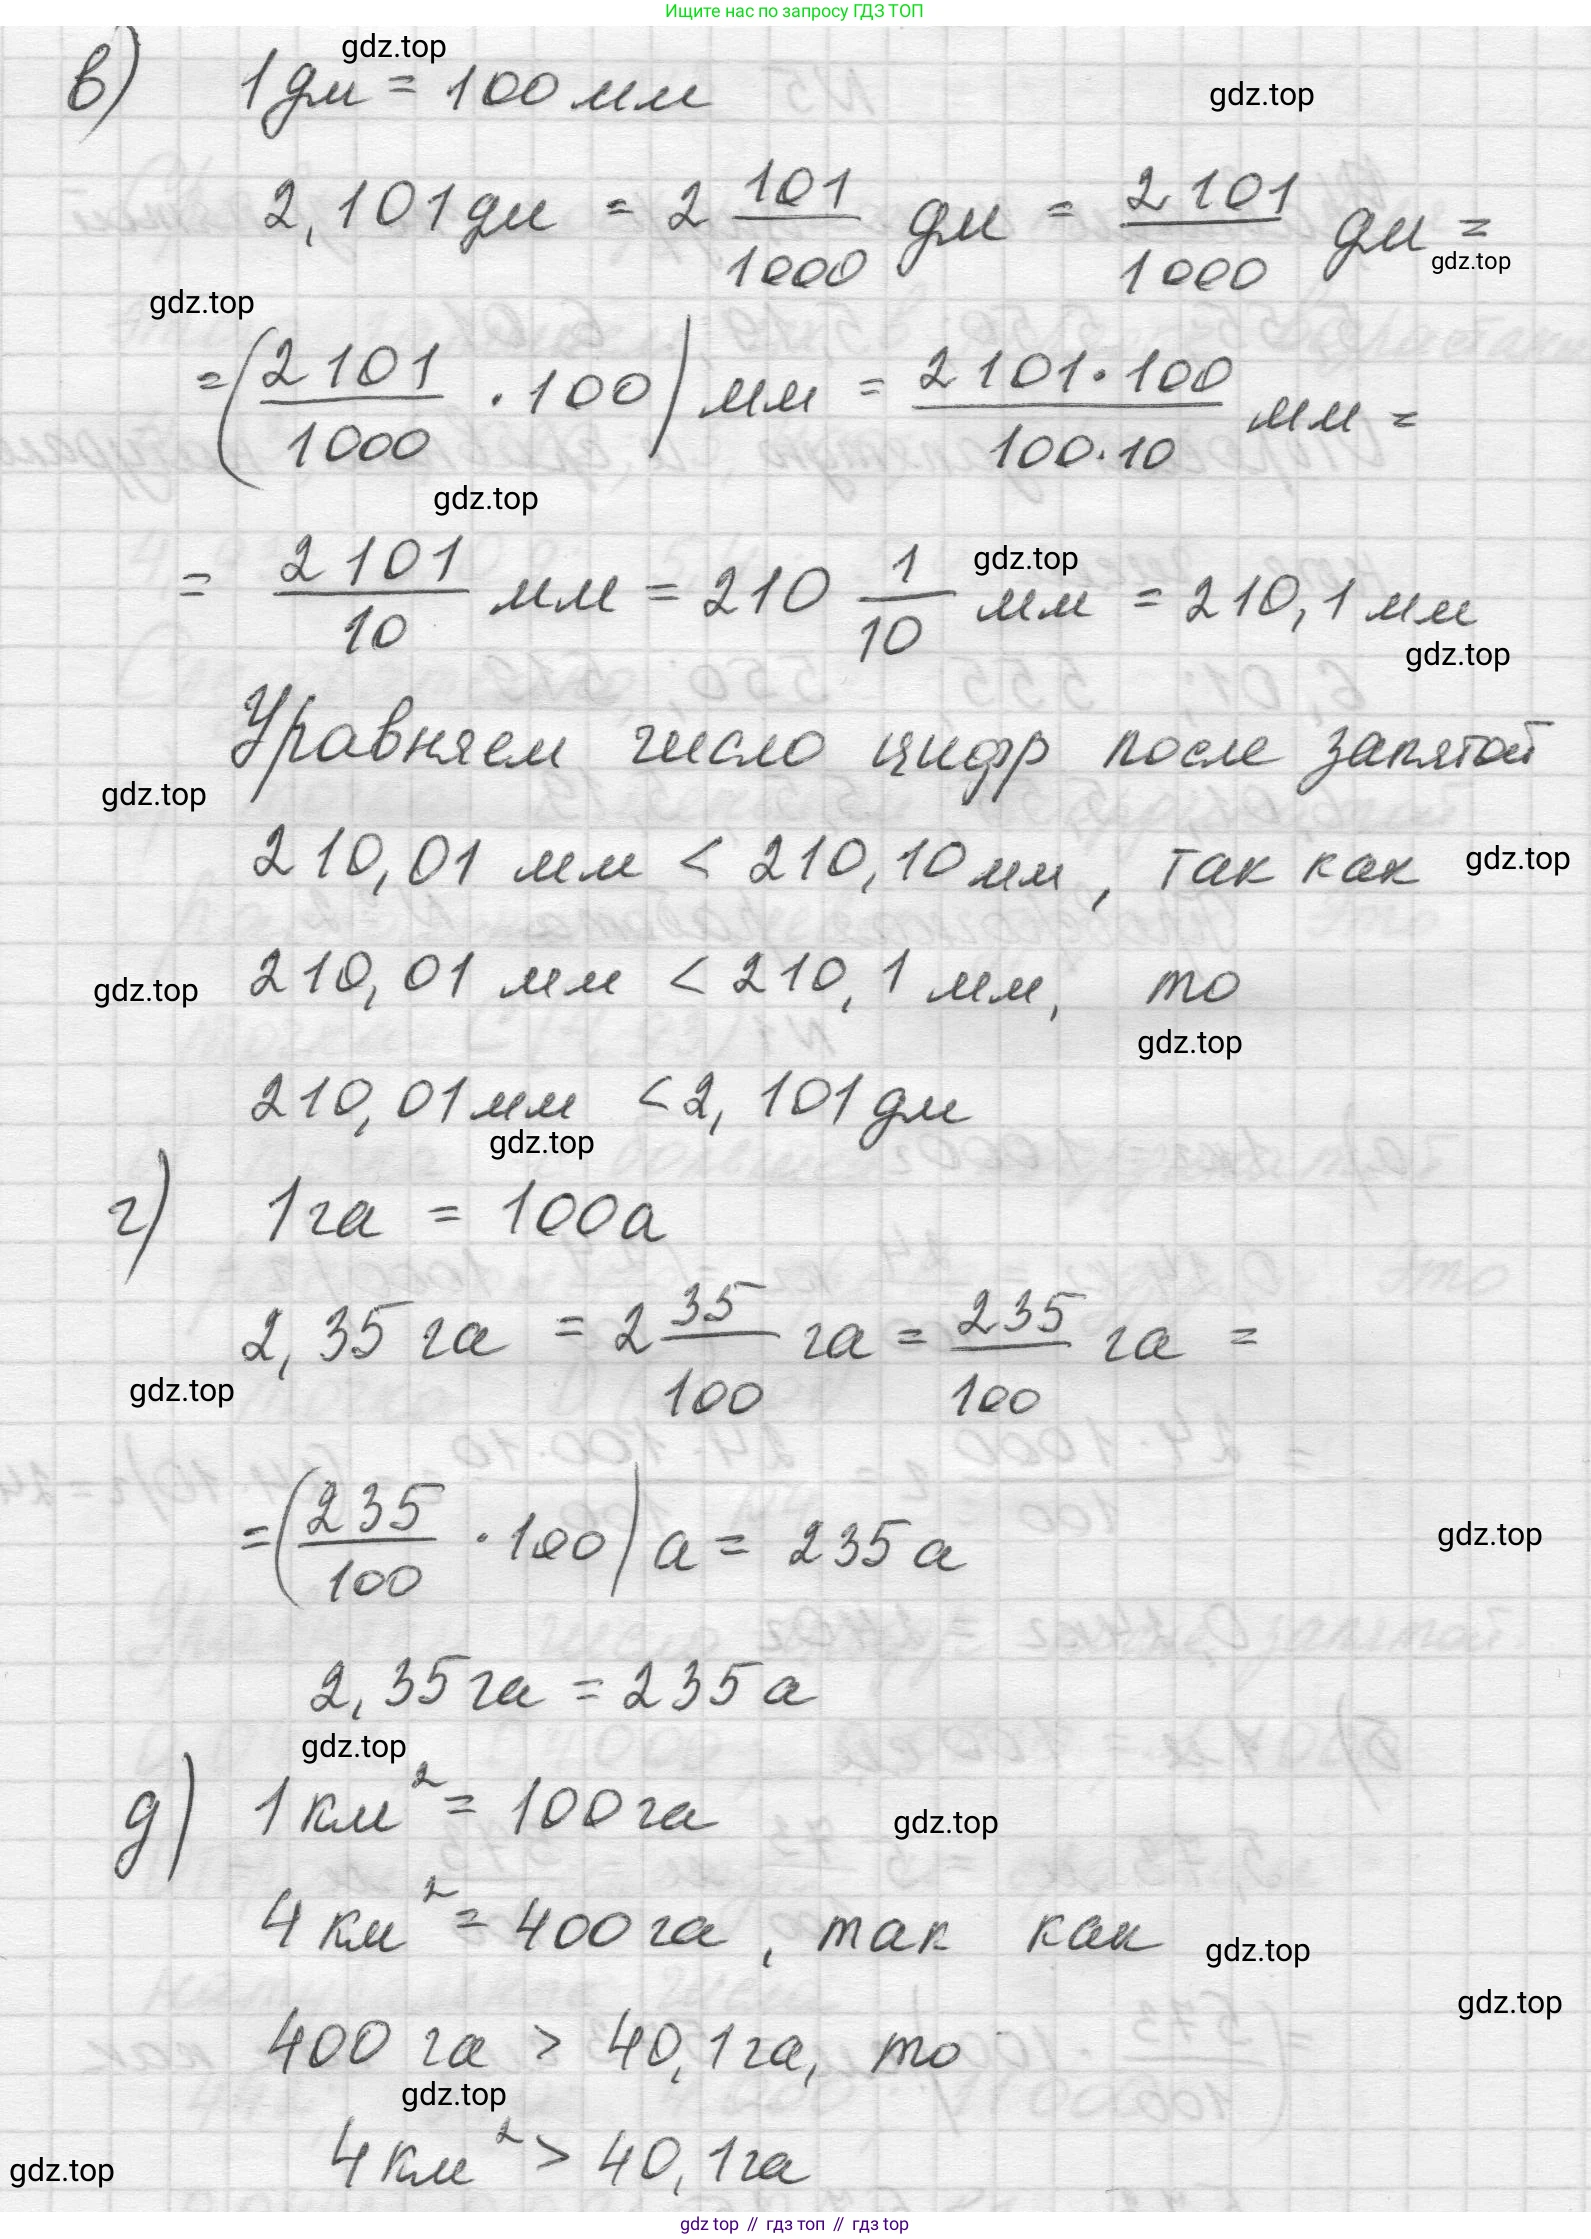 Ищите нас по запросу ГДЗ ТОП
gdz.top
в) 1 дм = 100 мм
gdz.top
2,101 дм = 2 101/1000 дм = 2101/1000 дм =
gdz.top
gdz.top
= (2101/1000 · 100) мм = 2101·100/100·10 мм =
gdz.top
= 2101/10 мм = 210 1/10 мм = 210,1 мм
gdz.top
gdz.top
Уравняем число цифр после запятой
gdz.top
210,01 мм < 210,10 мм, так как
gdz.top
210,01 мм < 210,1 мм, то
gdz.top
gdz.top
210,01 мм < 2,101 дм
gdz.top
г) 1 га = 100 а
2,35 га = 2 35/100 га = 235/100 га =
gdz.top
= (235/100 · 100) а = 235 а
gdz.top
2,35 га = 235 а
gdz.top
д) 1 км² = 100 га
gdz.top
4 км² = 400 га, так как
gdz.top
gdz.top
400 га > 40,1 га, то
gdz.top
4 км² > 40,1 га
gdz.top
gdz top // гдз топ // гдз top